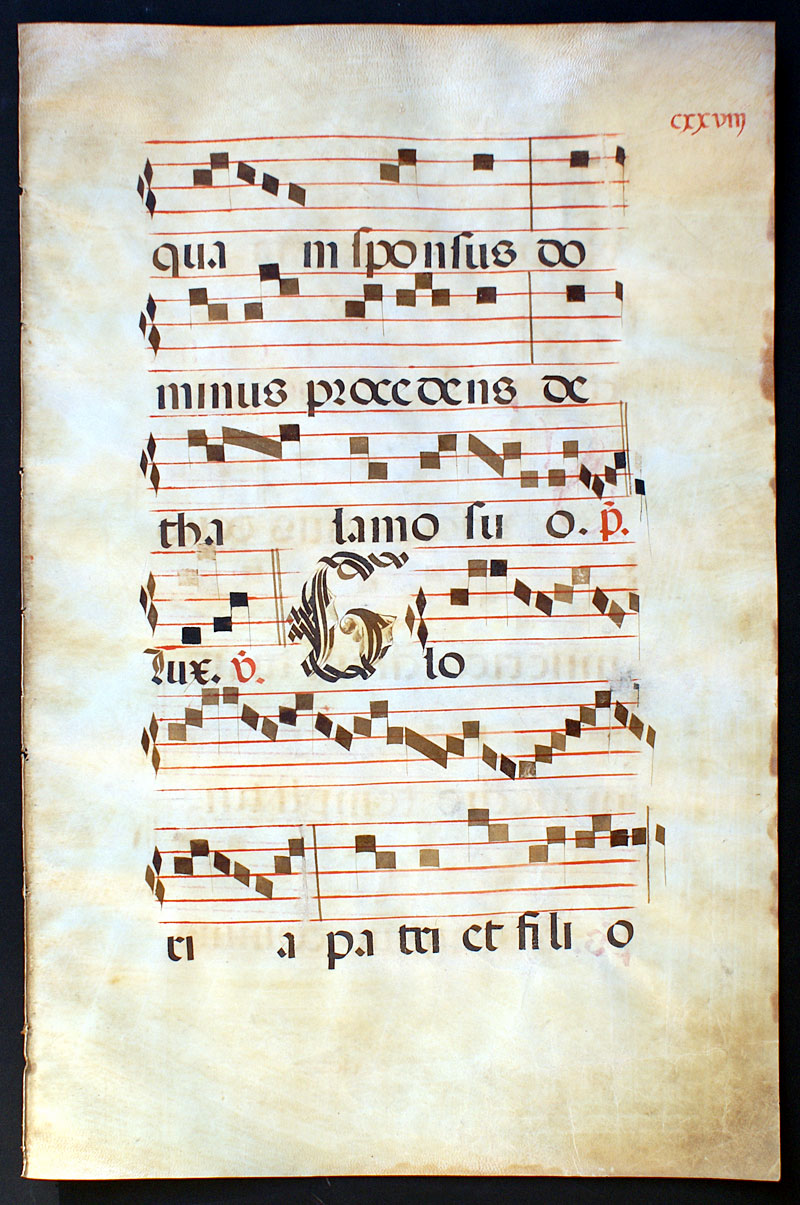 cxxviij
qua m sponsus do
minus procedens de
tha lamo su o. p̄.
Lux. v̄.
Glo
ri a patri et fili o